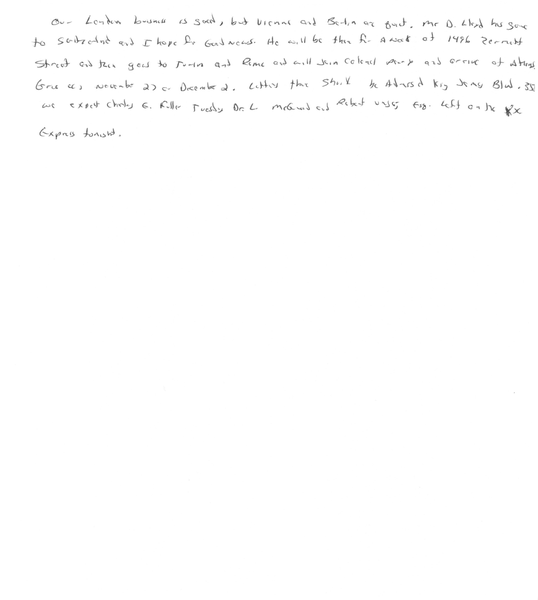 Our London business is good, but Vienna and Berlin are quiet. Mr D. Lloyd has gone
to Switzerland and I hope for Good news. He will be there for a week at 1496 Zermott
Street and then goes to Turin and Rome and will Join Colonel Parry and arrive at Athens,
Greece, November 27 or December 2. Letters there Should be Adressed King James Blvd. 3
we expect Charles E. Fuller Tuesday Dr. L. McQuaid and Robert Unger, Esq. Left on the
Express tonight.